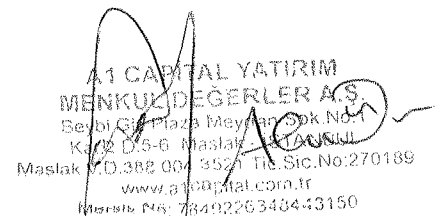 A1 CAPITAL YATIRIM
MENKUL DEĞERLER A.Ş.
Plaza Sok.No:1
D.5-6 Maslak
Maslak V.D.388 004 3521 Tic.Sic.No:270189
www.a1capital.com.tr
Mersis No: 7849226348443150